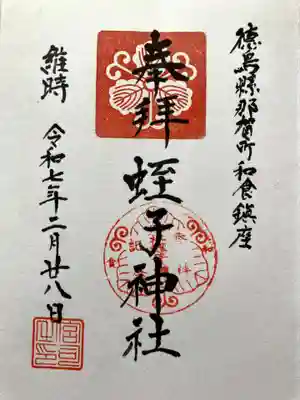 徳島縣那賀町和食鎮座
奉拝
蛭子神社
維時 令和七年二月廿八日
宮司之印